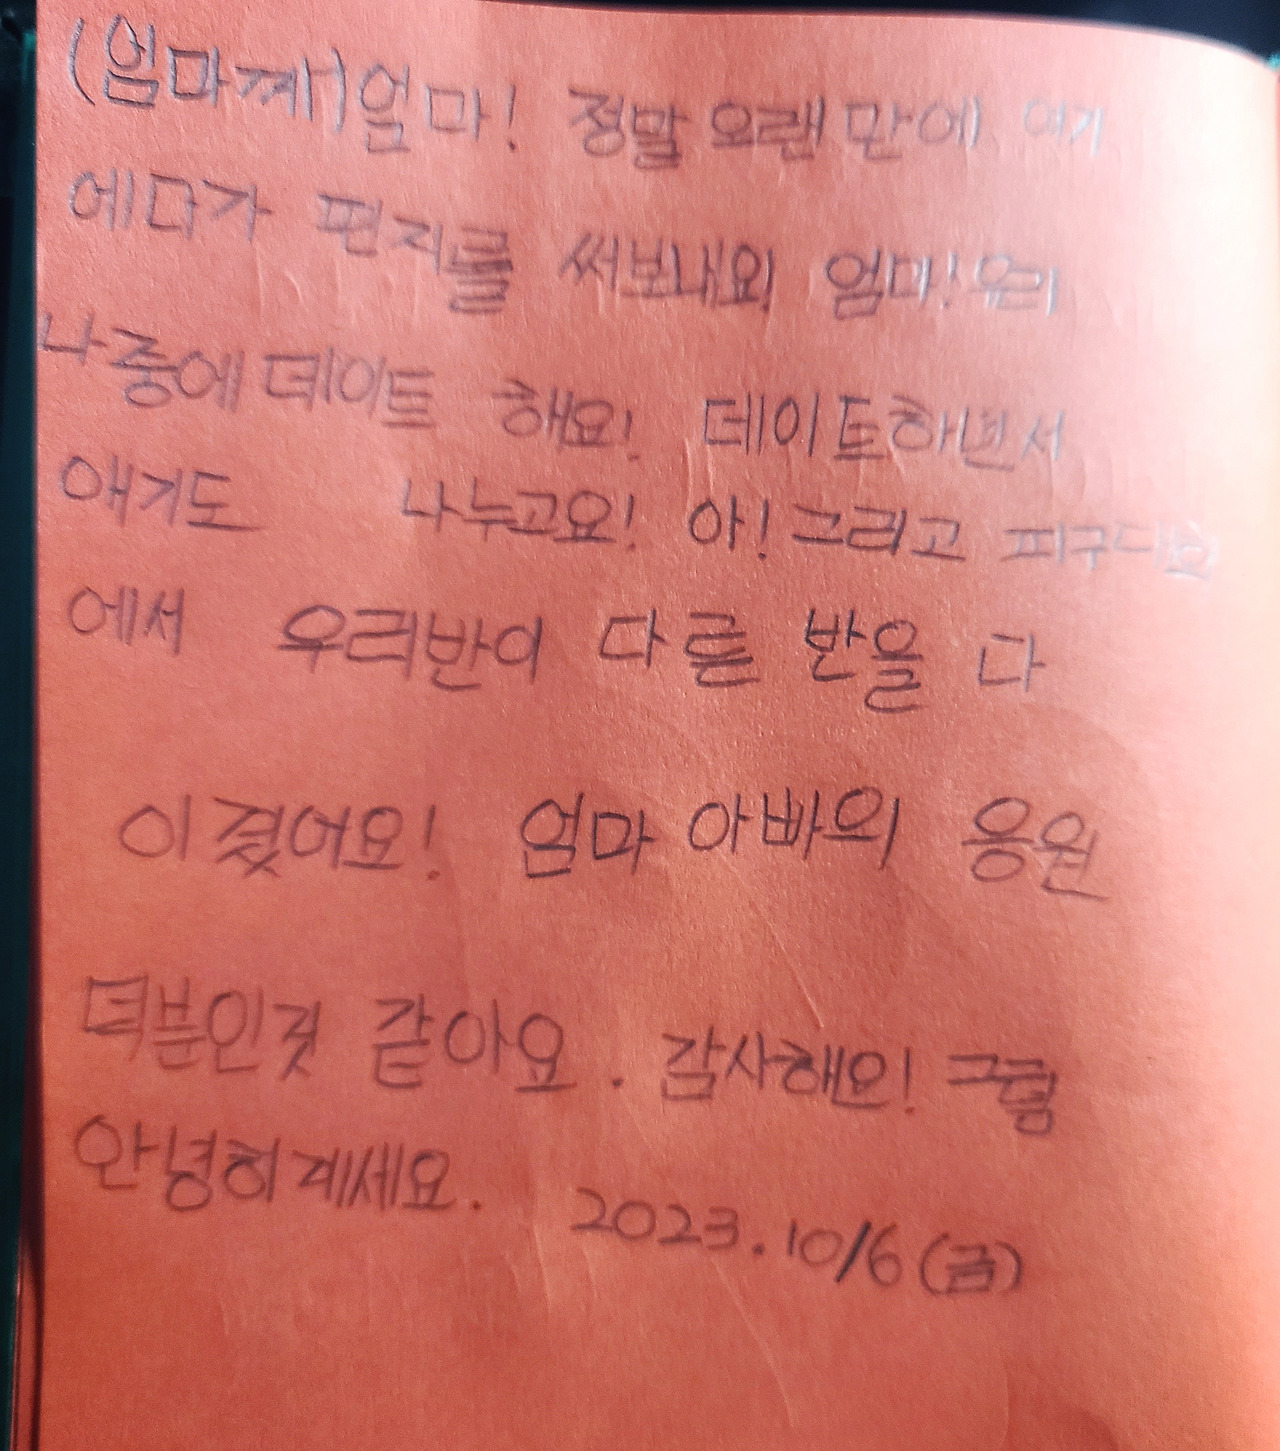 (엄마께)엄마! 정말 오랜만에 여기
에다가 편지를 써보내요! 엄마! 우리
나중에 데이트 해요! 데이트하면서
얘기도 나누고요! 아! 그리고 피구대회
에서 우리반이 다른 반을 다
이겼어요! 엄마 아빠의 응원
덕분인것 같아요. 감사해요! 그럼
안녕히계세요. 2023.10/6(금)